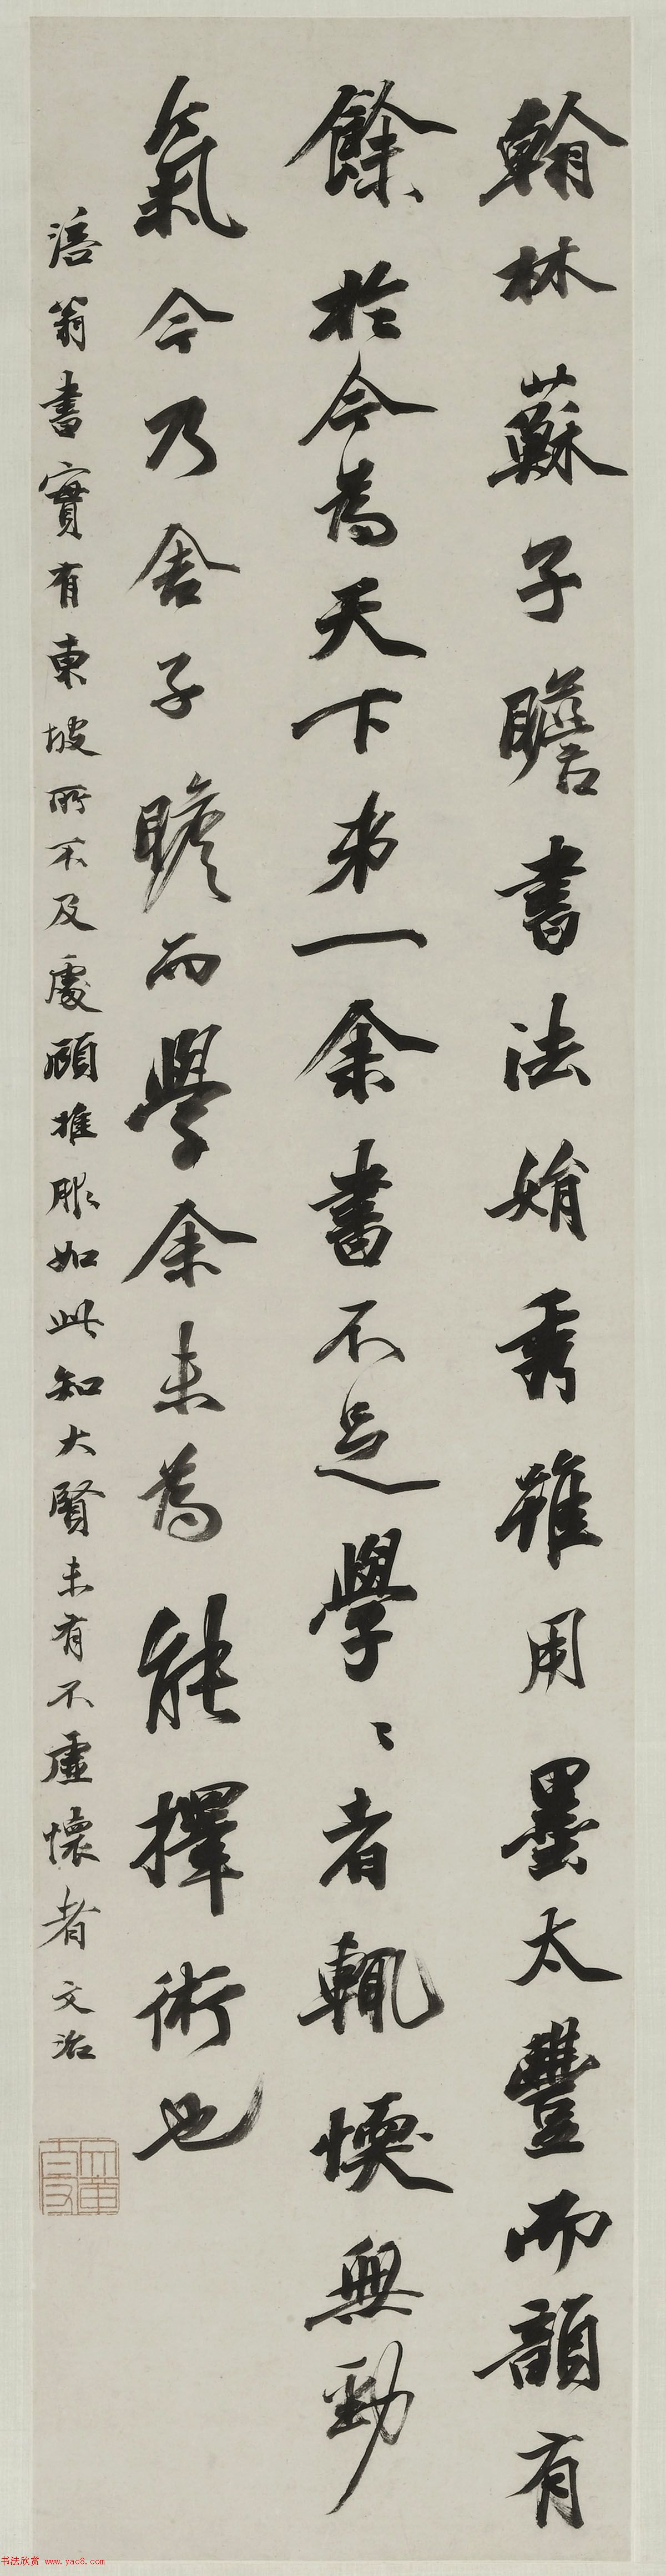 翰林蘇子瞻書法娟秀雖用墨太豐而韻有
餘於今為天下第一余書不足學〻者輒愞無勁
氣今乃舍子瞻而學余未為能擇術也
涪翁書實有東坡所不及處顧推服如此知大賢未有不虛懷者文治
书法欣赏 www.yac8.com